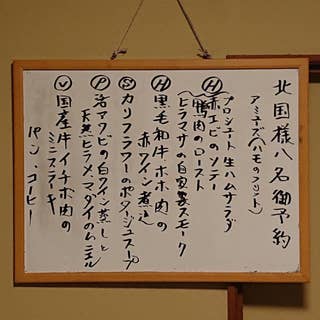 北国様八名御予約
アミューズ(ハモのフリット)
プロシュート生ハムサラダ
Ⓗ 赤エビのソテー
(鴨肉のロースト
ヒラマサの自家製スモーク
Ⓗ 黒毛和牛ホホ肉の
赤ワイン煮込
Ⓢ カリフラワーのポタージュスープ
Ⓟ 活アワビの白ワイン蒸しと
天然ヒラメ、マダイのムニエル
Ⓥ 国産牛イチボ肉の
ミニステーキ
パン、コーヒー